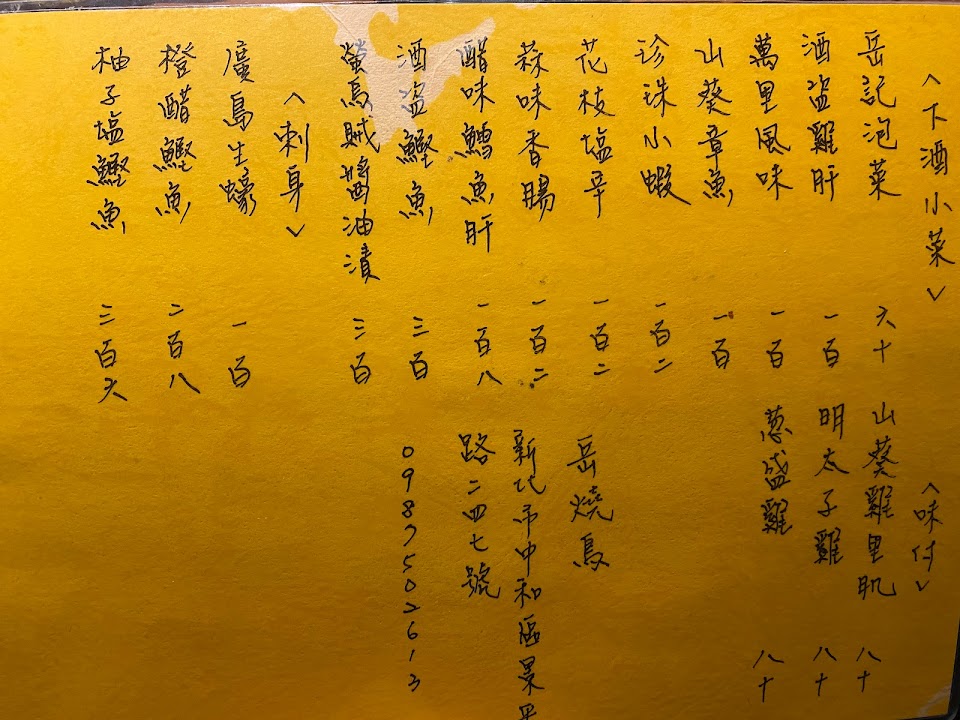 <下酒小菜>
岳記泡菜 六十
酒盜雞肝 一百
萬里風味 一百
山葵章魚 一百
珍珠小蝦 一百二
花枝塩辛 一百二
蒜味香腸 一百二
醋味鱈魚肝 一百八
酒盜鰹魚 三百
螢烏賊醬油漬 三百
<刺身>
廣島生蠔 一百
橙醋鰹魚 二百八
柚子塩鰹魚 三百六
<味付>
山葵雞里肌 八十
明太子雞 八十
葱盛雞 八十
岳燒鳥
新北市中和區景平
路二四七號
0987502613